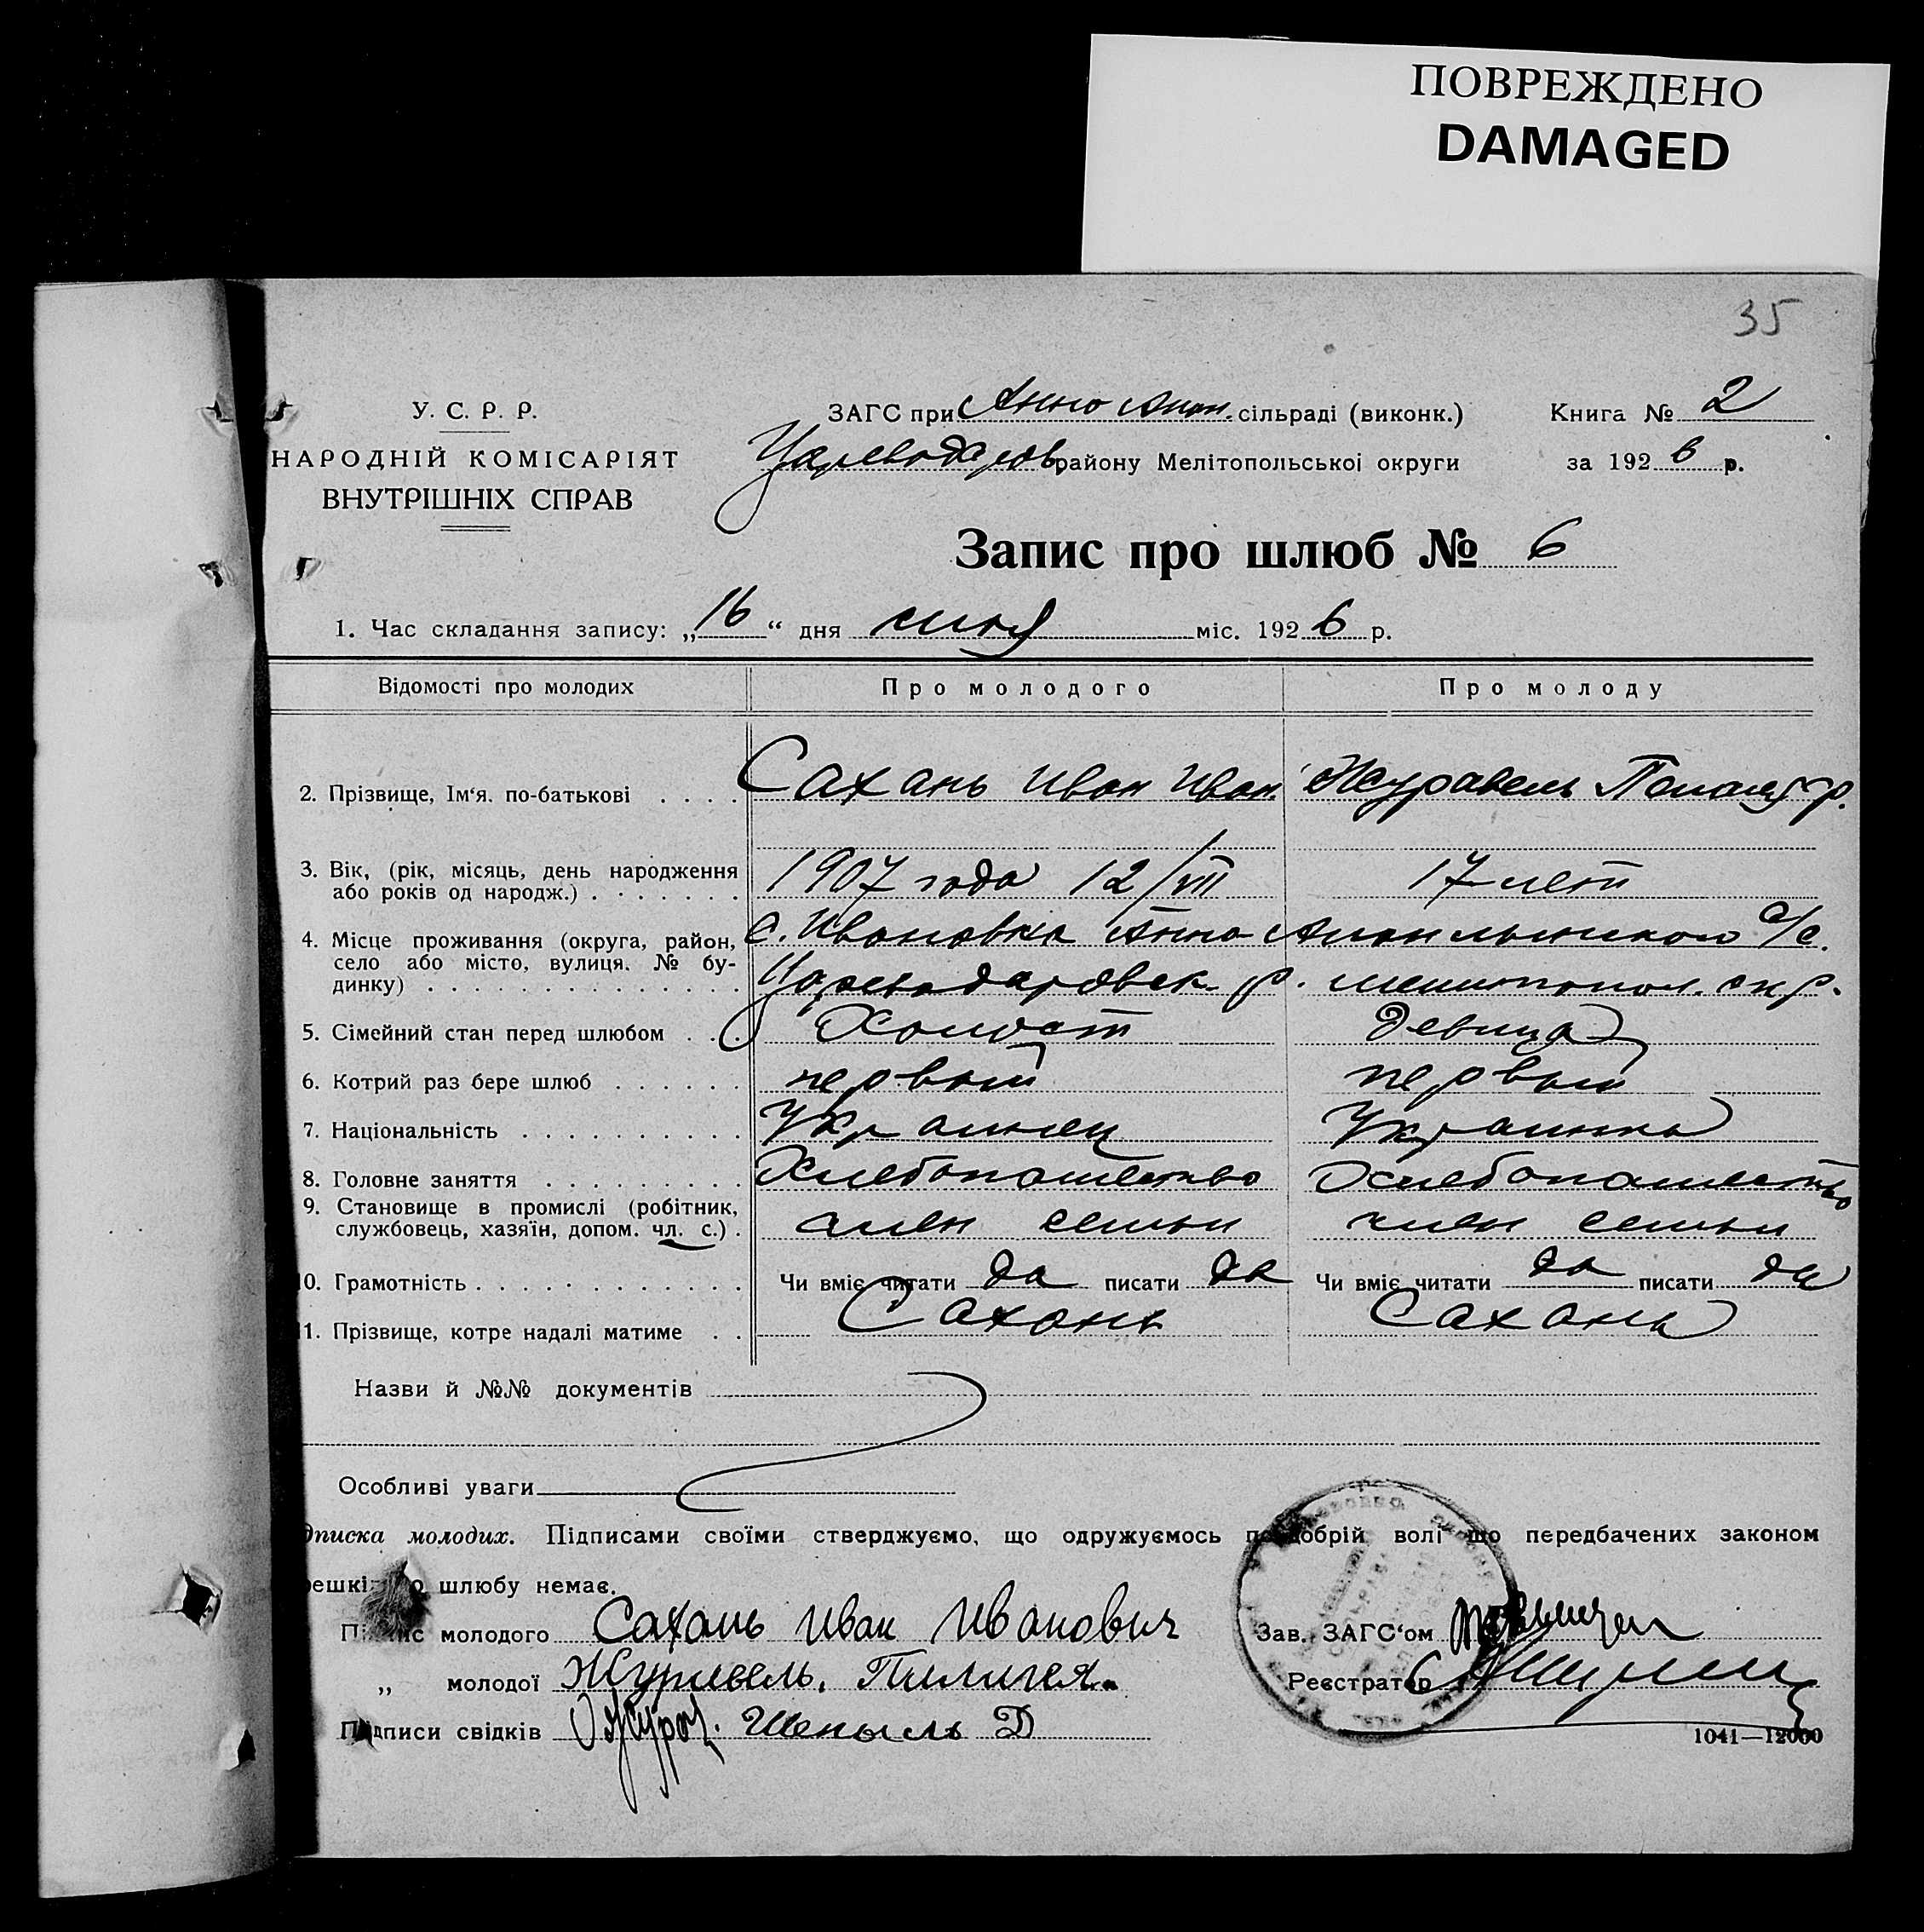 ПОВРЕЖДЕНО
DAMAGED
35
У. С. Р. Р.
НАРОДНІЙ КОМІСАРІЯТ
ВНУТРІШНІХ СПРАВ
ЗАГС при Анно Апан. сільраді (виконк.)
Цареводаров району Мелітопольської округи
Книга № 2
за 1926 р.
Запис про шлюб № 6
1. Час складання запису: „16“ дня міс. 1926 р.
Відомості про молодих Про молодого Про молоду
2. Прізвище, Ім‘я. по-батькові . . . . Сахань Иван Иван. Журавель Пелагея Гр.
3. Вік, (рік, місяць, день народження
або років од народж.) . . . . . . . 1907 года 12/VII 17 лет
4. Місце проживання (округа, район, с. Ивановка Анно- с/с.
село або місто, вулиця. № бу-
динку) . . . . . . . . . . . . . . Цареводаровск. р. мелитопол. окр.
5. Сімейний стан перед шлюбом . . . Холост девица
6. Котрий раз бере шлюб . . . . . . первый первый
7. Національність . . . . . . . . . . Украинец Украинка
8. Головне заняття . . . . . . . . . Хлебопашество Хлебопашество
9. Становище в промислі (робітник,
службовець, хазяїн, допом. чл. с.) . член семьи член семьи
10. Грамотність . . . . . . . . . . . . Чи вміє читати да писати да Чи вміє читати да писати да
11. Прізвище, котре надалі матиме . . Сахань Сахань
Назви й №№ документів
Особливі уваги
дписка молодих. Підписами своїми стверджуємо, що одружуємось по добрій волі що передбачених законом
решкі до шлюбу немає.
Підпис молодого Сахань Иван Иванович
„ молодої Журавель. Пилигея.
Підписи свідків Д
Зав. ЗАГС‘ом
Реєстратор
1041—12000